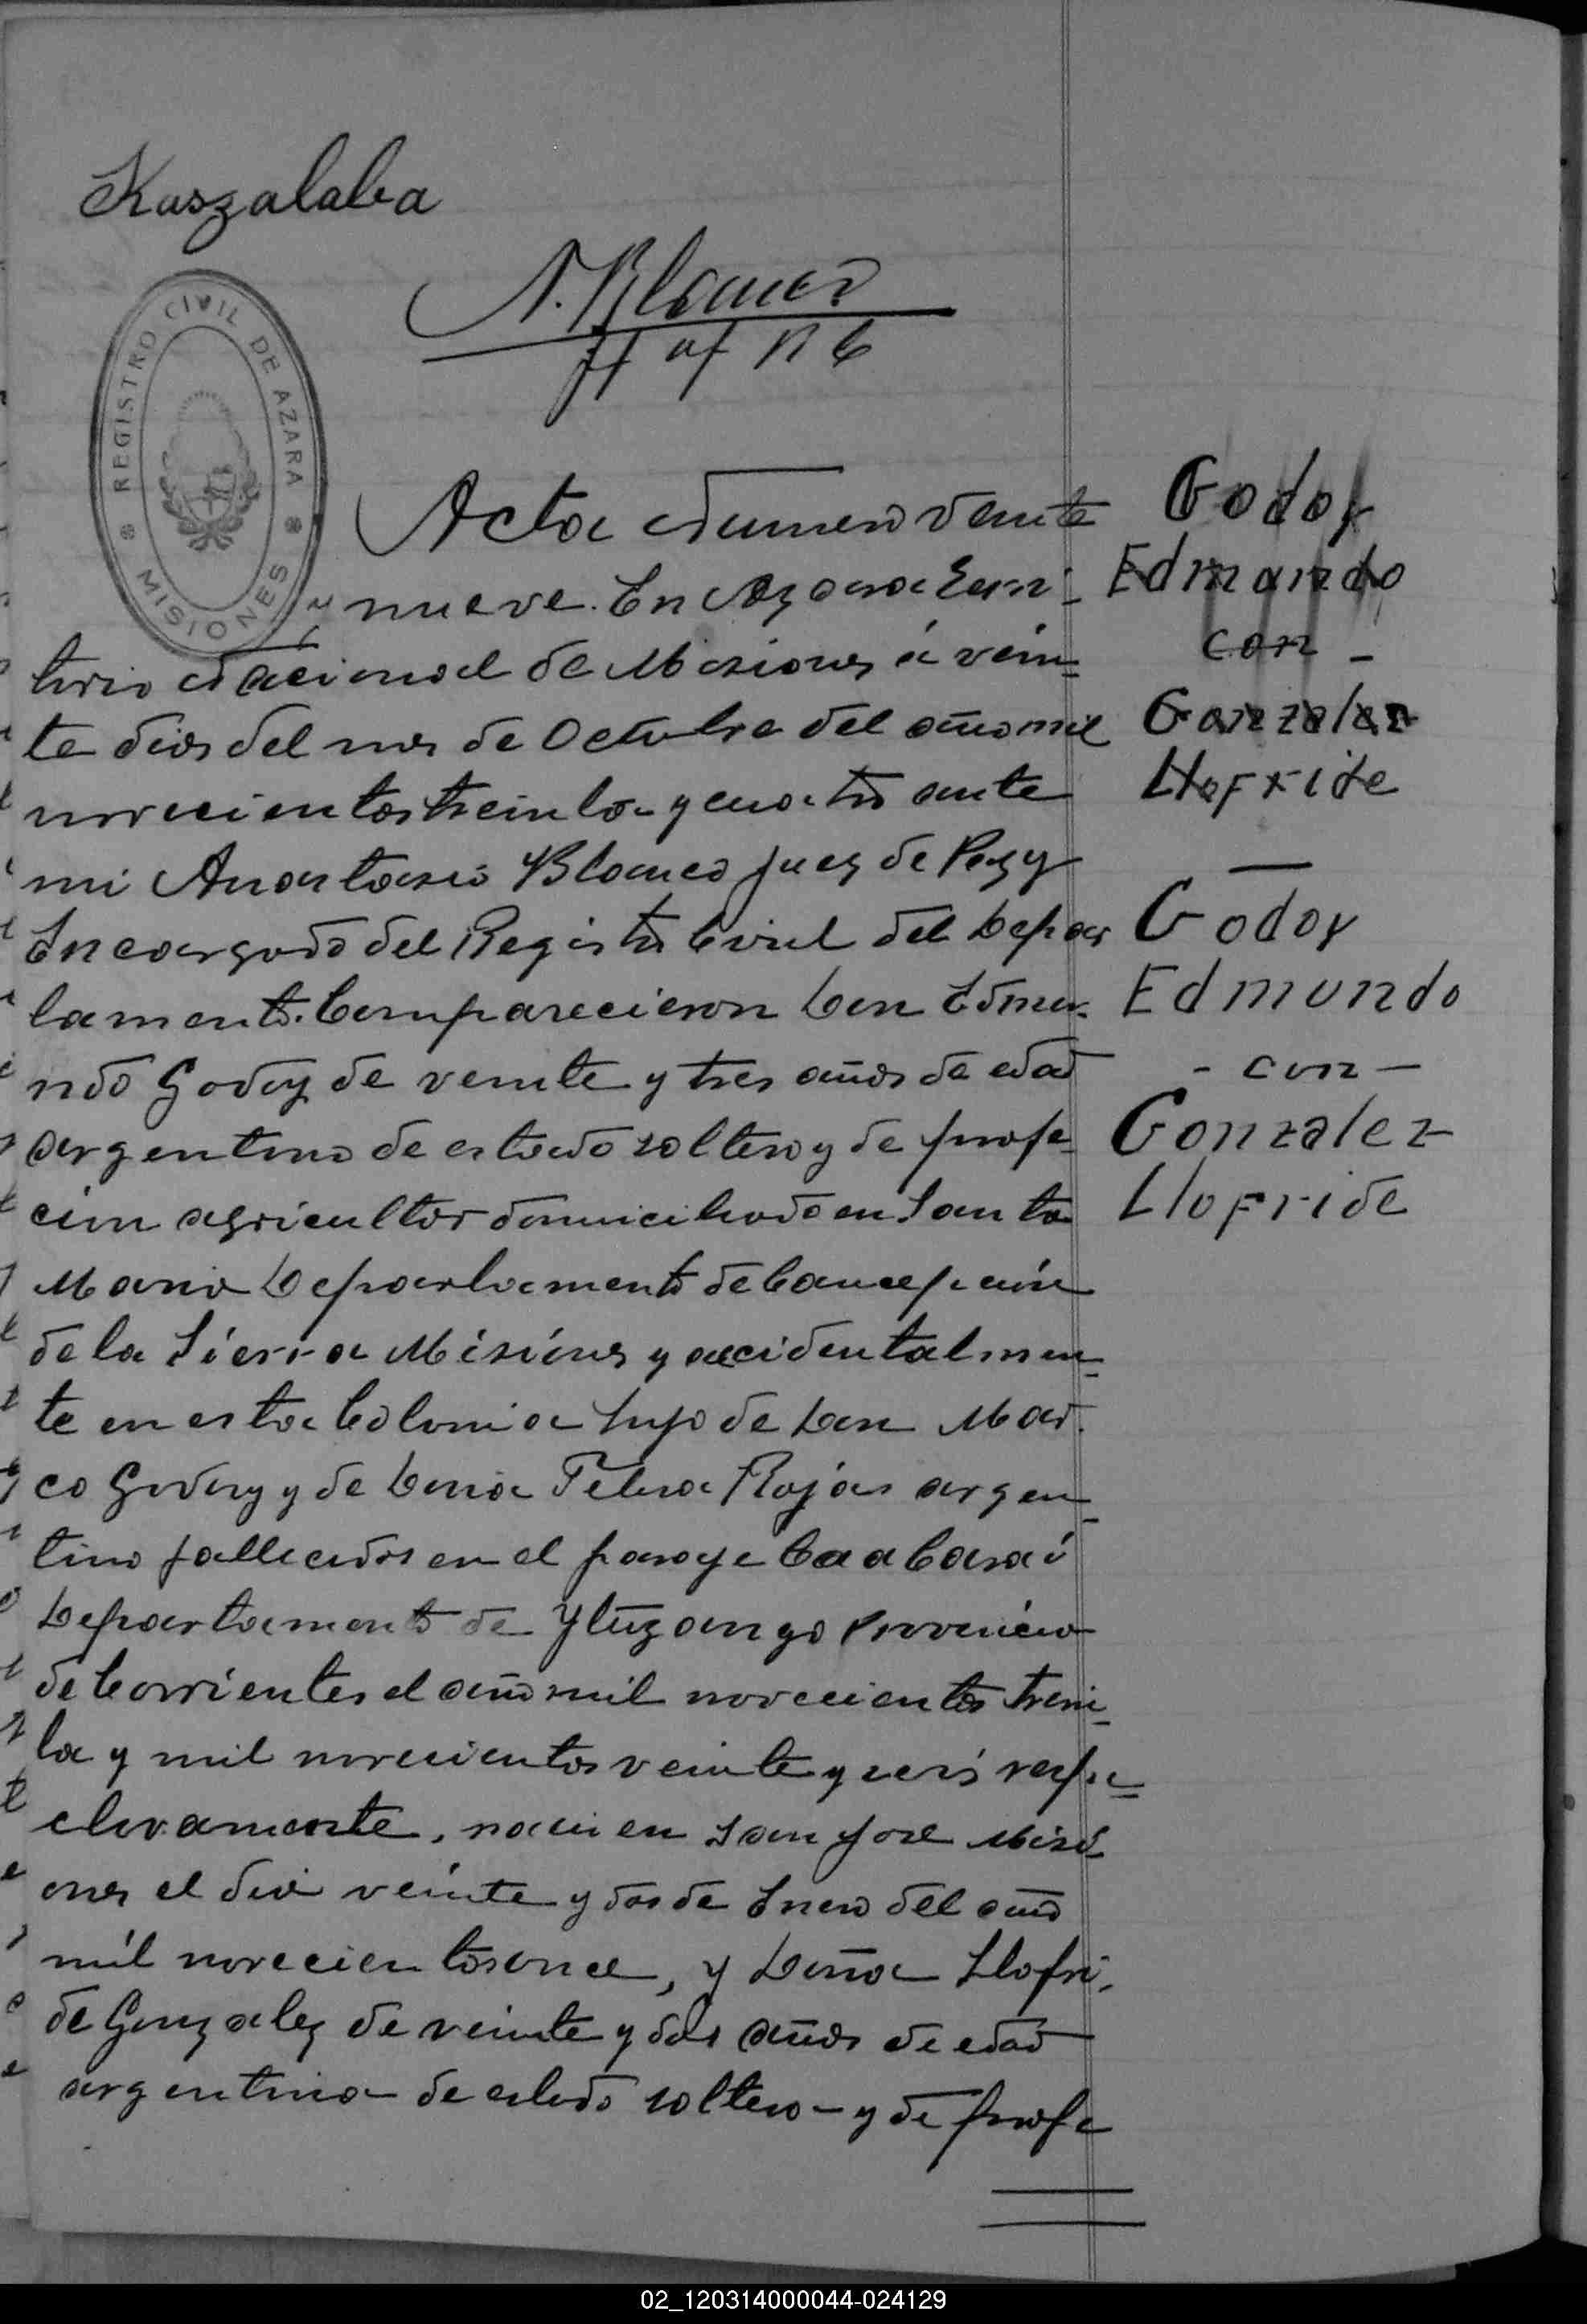 Kaszalaba
A. Blanco
Jf of R C
REGISTRO CIVIL DE AZARA
MISIONES
Acta Numero veinte
y nueve. En Azara Terri-
torio Nacional de Misiones á véin-
te dias del mes de Octubre del año mil
novecientos treinta y cuatro ante
mi Anastasio Blanco Juez de Paz y
Encargado del Registro Civil del Depar
tamento. Comparecieron Don Edmu-
ndo Godoy de veinte y tres años de edad
argentino de estado soltero y de profe-
cion agricultor domiciliado en Santa
Maria Departamento de Concepción
de la Siérra Misiónes y accidentalmen-
te en esta Colonia hijo de Don Mar-
co Godoy y de Dona Telma Rojas argen-
tino fallecidos en el paraje Caa Caraí
Departamento de Ytuzango Provincia
de Corrientes el año mil novecientos trein-
ta y mil novecientos veinte y seis respe-
ctivamente, nacio en San José Misi-
ones el dia veinte y dos de Enero del año
mil novecientos once, y Doña Llofri-
de Gonzalez de veinte y dos años de edad
argentina de estado soltera y de profe
Godoy
Edmundo
con -
Gonzalez
Llofride
Godoy
Edmundo
- con -
Gonzalez
Llofride
02_120314000044-024129